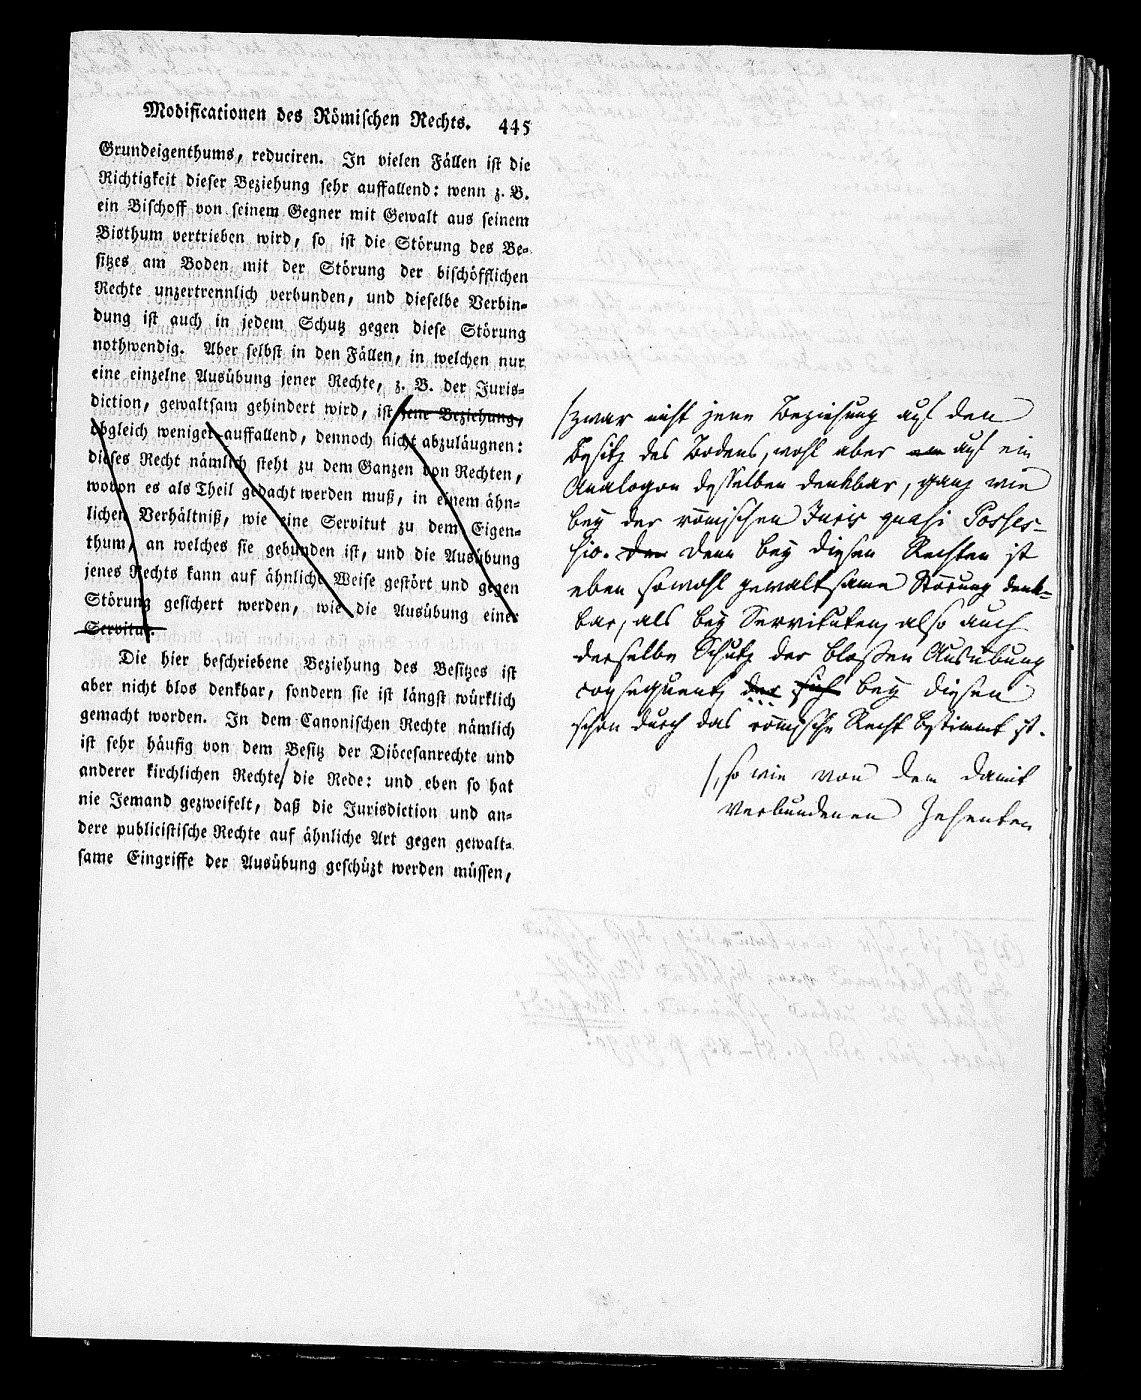 Modificationen des Römischen Rechts. 445
Grundeigenthums, reduciren. In vielen Fällen ist die
Richtigkeit dieser Beziehung sehr auffallend: wenn z. B.
ein Bischoff von seinem Gegner mit Gewalt aus seinem
Bisthum vertrieben wird, so ist die Störung des Be-
sitzes am Boden mit der Störung der bischöfflichen
Rechte unzertrennlich verbunden, und dieselbe Verbin-
dung ist auch in jedem Schutz gegen diese Störung
nothwendig. Aber selbst in den Fällen, in welchen nur
eine einzelne Ausübung jener Rechte, z. B. der Juris-
diction, gewaltsam gehindert wird, ist jene Beziehung,
obgleich weniger auffallend, dennoch nicht abzuläugnen:
dieses Recht nämlich steht zu dem Ganzen von Rechten,
wovon es als Theil gedacht werden muß, in einem ähn-
lichen Verhältniß, wie eine Servitut zu dem Eigen-
thum, an welches sie gebunden ist, und die Ausübung
jenes Rechts kann auf ähnliche Weise gestört und gegen
Störung gesichert werden, wie die Ausübung einer
Servitut.
Die hier beschriebene Beziehung des Besitzes ist
aber nicht blos denkbar, sondern sie ist längst würklich
gemacht worden. In dem Canonischen Rechte nämlich
ist sehr häufig von dem Besitz der Diöcesanrechte und
anderer kirchlichen Rechte/ die Rede: und eben so hat
nie Jemand gezweifelt, daß die Jurisdiction und an-
dere publicistische Rechte auf ähnliche Art gegen gewalt-
same Eingriffe der Ausübung geschüzt werden müssen,
/zwar nicht jene Beziehung auf den
Besitz des Bodens, wohl aber auf ein
Analogon desselben denkbar, ganz wie
bey der römischen Juris quasi Posses-
sio. Denn bey diesen Rechten ist
eben sowohl gewaltsame Störung denk-
bar, als bey Servituten, also auch
derselbe Schutz der bloßen Ausübung
consequent, der sich bey diesen
schon durch das römische Recht bestimmt ist.
/, so wie von dem damit
verbundenen Zehenten